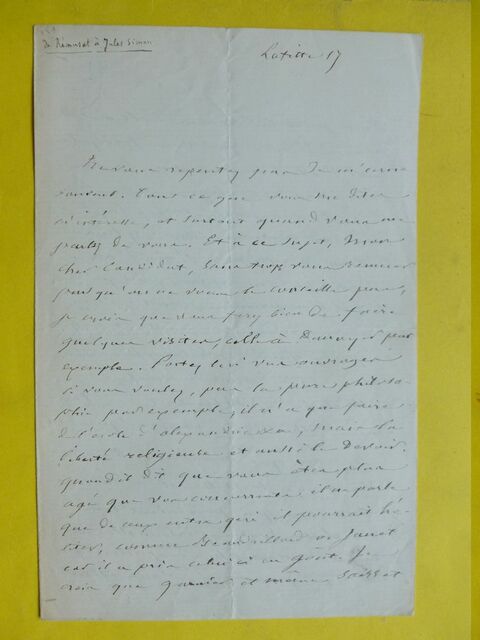 De Rémusat à Jules Simon
Lafitte 17
Ne vous repentez pas de m'écrire
souvent. Tout ce que vous me dites
m'intéresse, et surtout quand vous me
parlez de vous. Et à ce sujet, mon
cher Candidat, sans trop vous remuer
puisqu'on ne vous le conseille pas,
je crois que vous ferez bien de faire
quelques visites, celle à par
exemple. Portez lui vos ouvrages
si vous voulez, pas la pure philoso-
phie par exemple, il n'a que faire
de l'école d'alexandrie, mais la
liberté religieuse et aussi le Devoir.
Quand il dit que vous êtes plus
agé que vos concurrents, il ne parle
que de ceux entre qui il pourrait hé-
siter, comme Baudrillard ou Janet
car il a pris celui-ci en goût. Je
crois que Garnier et même